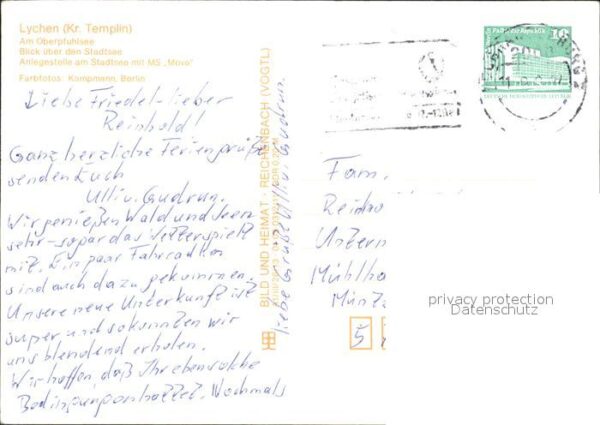 Lychen (Kr. Templin)
Am Oberpfuhlsee
Blick über den Stadtsee
Anlegestelle am Stadtsee mit MS „Möve“
Farbfotos: Kampmann, Berlin
Liebe Friedel - lieber
Reinhold!
Ganz herzliche Feriengrüße
senden Euch
Ulli u. Gudrun.
Wir genießen Wald und Seen
sehr - sogar das Wetter spielt
mit. Ein paar Fahrradton
sind auch dazu gekommen.
Unsere neue Unterkunft ist
super und so konnten wir
uns blendend erholen.
Wir hoffen, daß Ihr ebensolche
Bedingungen hattet. Nochmals
liebe Grüße Ulli u. Gudrun.
BILD UND HEIMAT REICHENBACH (VOGTL)
Palast der Republik
10
Fam.
Reinho
Untern
Mühlha
Münz
5
privacy protection
Datenschutz